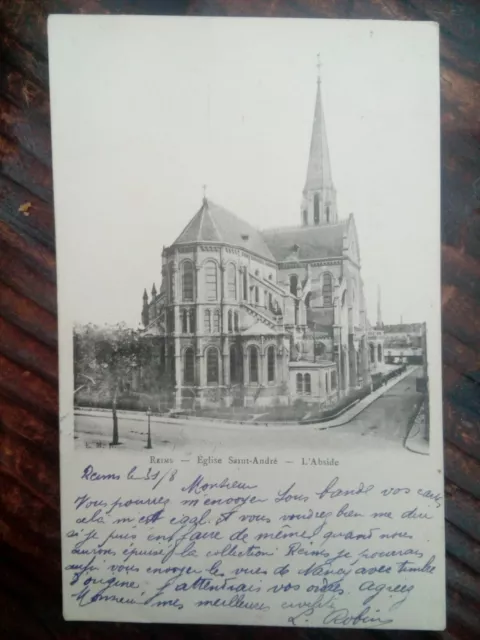 REIMS — Église Saint-André — L'Abside
Reims le 31/8
Monsieur
Vous pourrez m'envoyer sous bande vos cartes
cela m'est égal. Si vous voudrez bien me dire
si je puis en faire de même, quand nous
aurons épuisé la collection Reims je pourrais
aussi vous envoyer les vues de Nancy avec timbre
d'origine. J'attendrais vos ordres. Agréez
Monsieur mes meilleures civilités
L. Robin